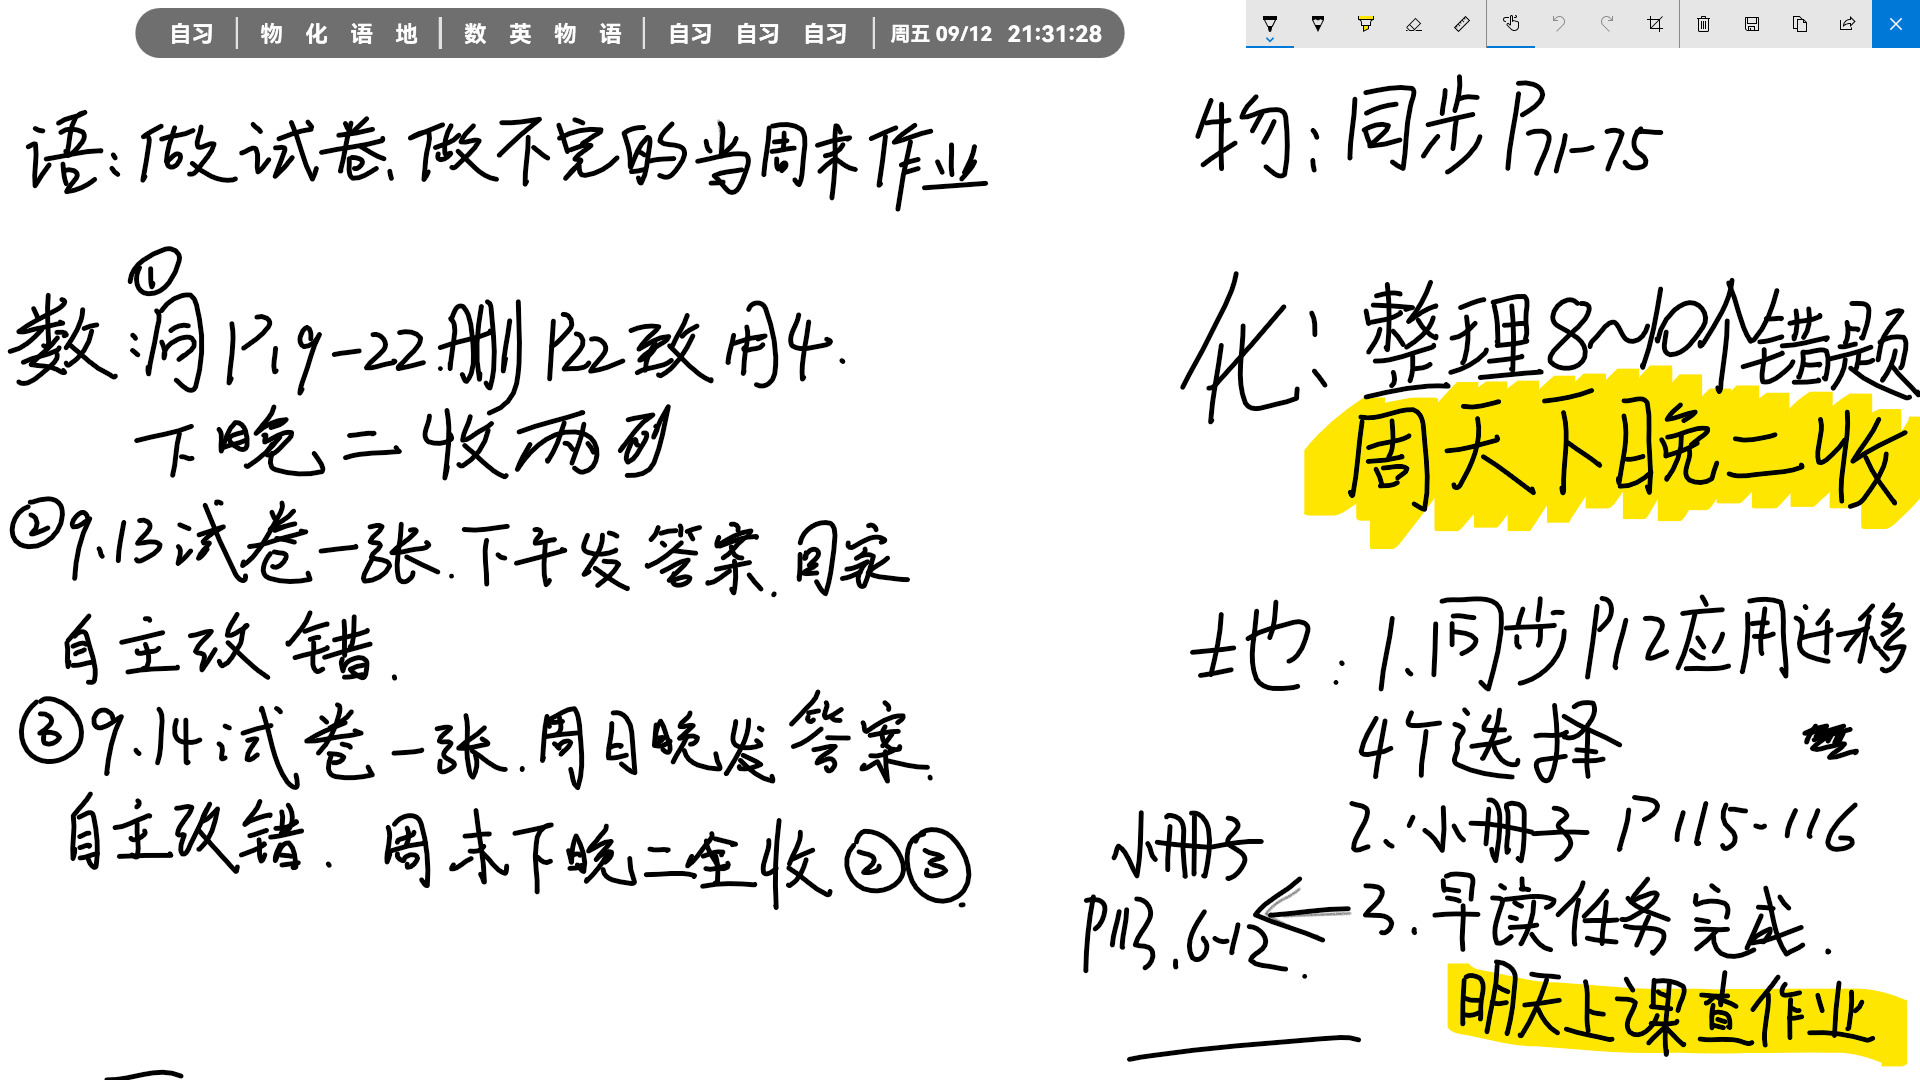 自习 | 物 化 语 地 | 数 英 物 语 | 自习 自习 自习 | 周五 09/12 21:31:28
语:做试卷、做不完的当周末作业
数:①同P19-22.删P22致用4.
下晚二收两列
②9.13试卷一张.下午发答案.回家
自主改错.
③9.14试卷一张.周日晚发答案.
自主改错. 周末下晚二全收②③.
物:同步P71-75
化:整理8~10个错题
周天下晚二收
地:1.同步P12应用迁移
4个选择
2.小册子P115-116
3.早读任务完成.
小册子
P113.6-12.
明天上课查作业